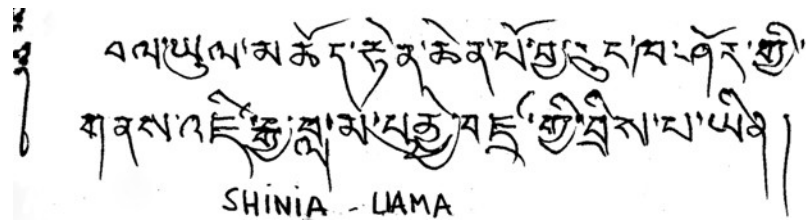 བལ་ཡུལ་མཆོད་རྟེན་ཆེན་པོ་བྱ་རུང་ཁ་ཤོར་གྱི་
གནས་འཛི་རྒྱ་བླ་མ་པུནྱེ་བཛྲ་གྱི་བྲིས་པ་ཡིན།
SHINIA - LIAMA